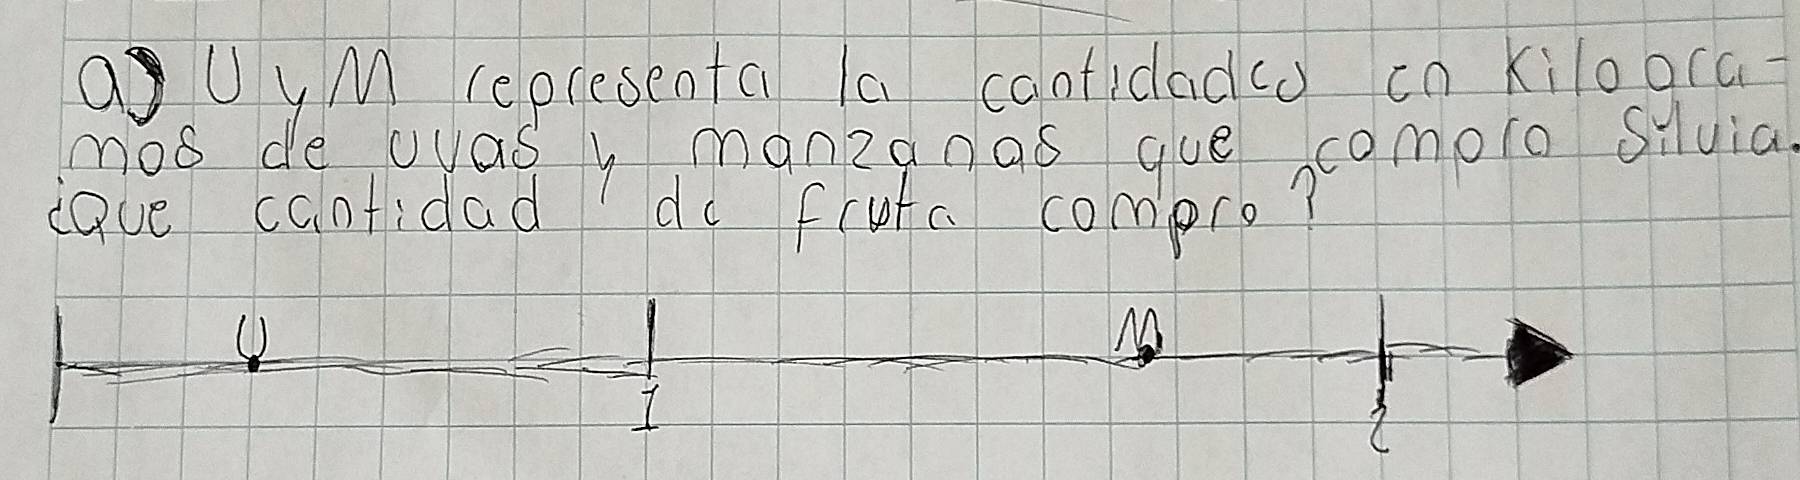 a) U y M representa la cantidades en Kilogra-
mos de uvas y manzanas que compro Silvia.
¿Que cantidad de fruta compro?
U M
1 2